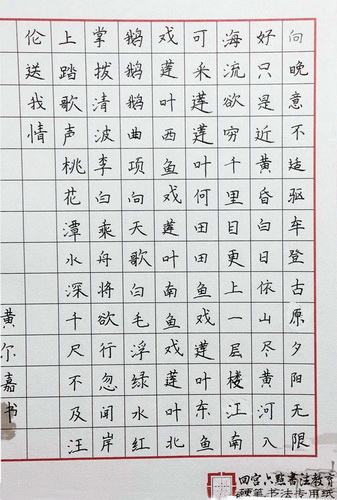 向晚意不适驱车登古原夕阳无限
好只是近黄昏白日依山尽黄河入
海流欲穷千里目更上一层楼江南
可采莲莲叶何田田鱼戏莲叶东鱼
戏莲叶西鱼戏莲叶南鱼戏莲叶北
鹅鹅鹅曲项向天歌白毛浮绿水红
掌拨清波李白乘舟将欲行忽闻岸
上踏歌声桃花潭水深千尺不及汪
伦送我情
黄尔嘉书
四宫六點書法教育
硬笔书法专用纸